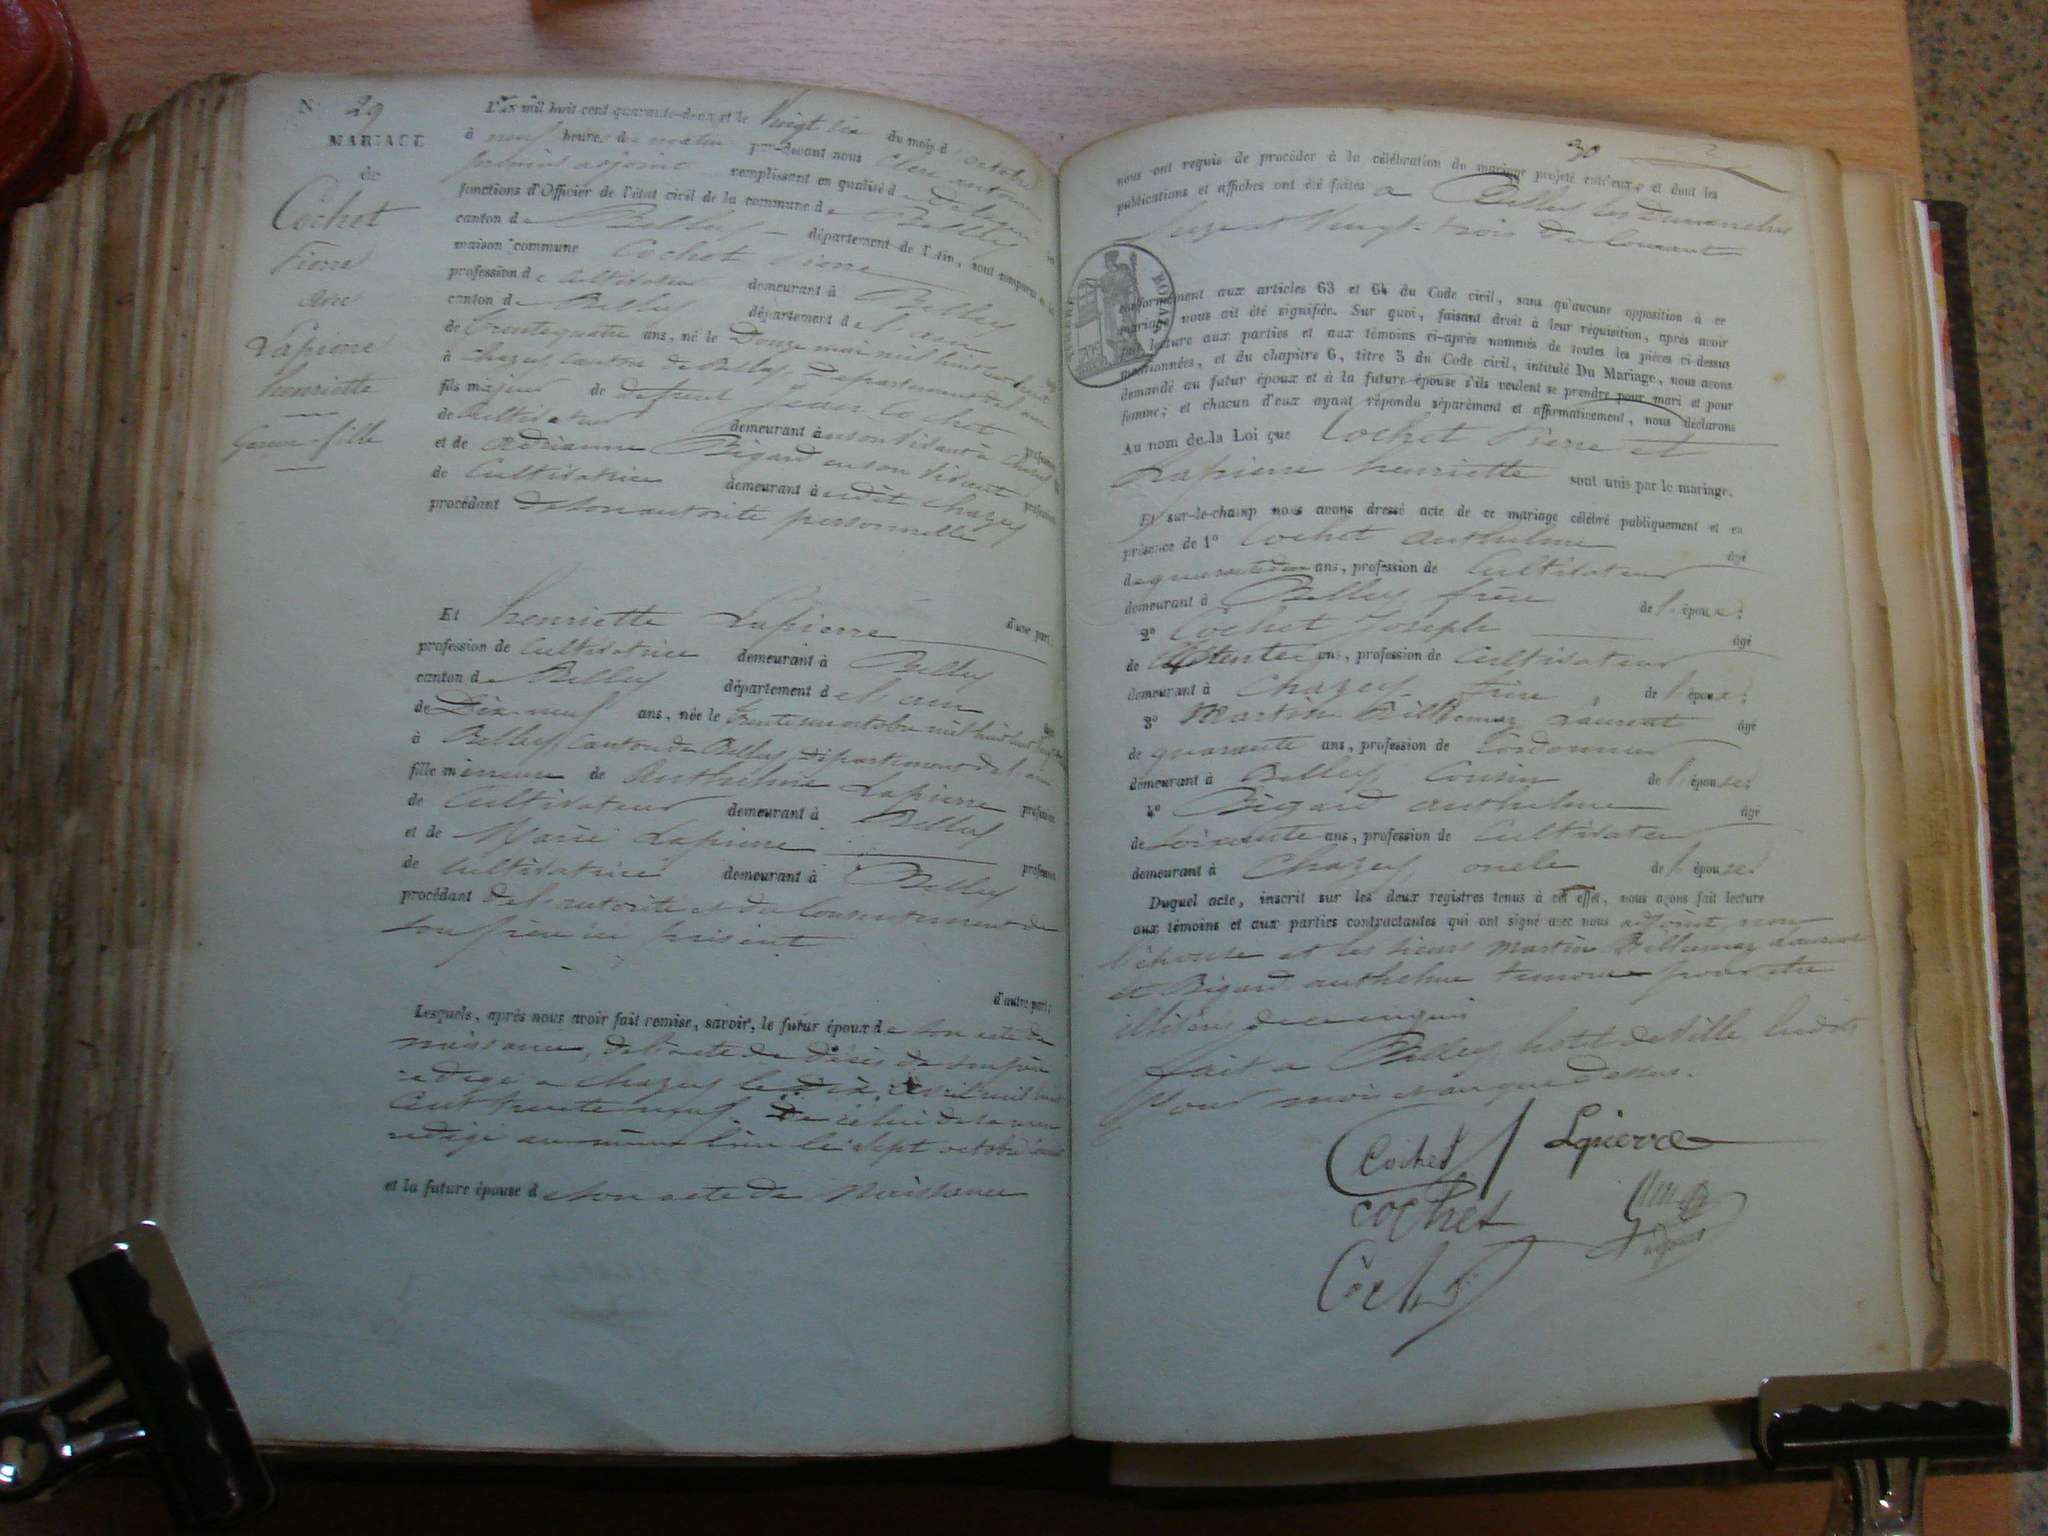 N° 29
MARIAGE
de
Cochet
Pierre
avec
Lapierre
henriette
Garcon-fille
L'an mil huit cent quarante-deux et le Vingt six du mois d'octobre
à neuf heures du matin par-devant nous antoine
premier adjoint remplissant en qualité de Délégué
fonctions d'Officier de l'état civil de la commune de Belley
canton de Belley département de l'Ain, sont comparus en la
maison commune Cochet Pierre
profession de Cultivateur demeurant à Belley
canton de Belley département de l'ain
de trentequatre ans, né le Douze mai mil huit cent huit
à Chazey Canton de Belley Département de l'ain
fils majeur de defunt Jean Cochet
de Cultivateur demeurant à en son vivant à Chazey
et de Adrianne Bigard en son vivant profession
de Cultivatrice demeurant à audit Chazey
procédant de son autorité personnelle
d'une part;
Et henriette Lapierre
profession de Cultivatrice demeurant à Belley
canton de Belley département de l'ain
de Dix-neuf ans, née le trenteun octobre mil huit cent
à Belley, Canton de Belley Département de l'ain
fille mineure de Anthelme Lapierre profession
de Cultivateur demeurant à Belley
et de Marie Lapierre profession
de Cultivatrice demeurant à Belley
procédant de l'autorité et du Consentement de
son père ici présent
d'autre part;
Lesquels, après nous avoir fait remise, savoir, le futur époux de son acte de
naissance, de l'acte de décès de son père
redigé a Chazey le dix avril mil huit
cent trente neuf, De celui de sa mere
redigé au même lieu le sept octobre
et la future épouse de son acte de Naissance
30
nous ont requis de procéder à la célébration du mariage projeté entre eux, et dont les
publications et affiches ont été faites a Belley les Dimanches
Seize et Vingt-trois du Courant
TIMBRE ROYAL
conformément aux articles 63 et 64 du Code civil, sans qu'aucune opposition à ce
mariage nous ait été signifiée. Sur quoi, faisant droit à leur réquisition, après avoir
fait lecture aux parties et aux témoins ci-après nommés de toutes les pièces ci-dessus
mentionnées, et du chapitre 6, titre 5 du Code civil, intitulé Du Mariage, nous avons
demandé au futur époux et à la future épouse s'ils veulent se prendre pour mari et pour
femme; et chacun d'eux ayant répondu séparément et affirmativement, nous déclarons
Au nom de la Loi que Cochet Pierre et
Lapierre henriette sont unis par le mariage.
Et sur-le-champ nous avons dressé acte de ce mariage célébré publiquement et en
présence de 1° Cochet anthelme âgé
de quarantedeux ans, profession de Cultivateur
demeurant à Belley frere de l'époux;
2° Cochet Joseph âgé
de trente ans, profession de Cultivateur
demeurant à Chazey frère de l'époux;
3° Martin Billemaz Laurent âgé
de quarante ans, profession de Cordonnier
demeurant à Belley Cousin de l'épouse;
4° Bigard anthelme âgé
de soixante ans, profession de Cultivateur
demeurant à Chazey oncle de l'époux
Duquel acte, inscrit sur les deux registres tenus à cet effet, nous avons fait lecture
aux témoins et aux parties contractantes qui ont signé avec nous adjoint, non
l'épouse et les sieurs Martin Billemaz Laurent
et Bigard anthelme temoins pour etre
illitérés de ce enquis
fait a Belley hotel de Ville lesdits
jour mois et an que dessus.
Cochet Lapierre
cochet
Cochet